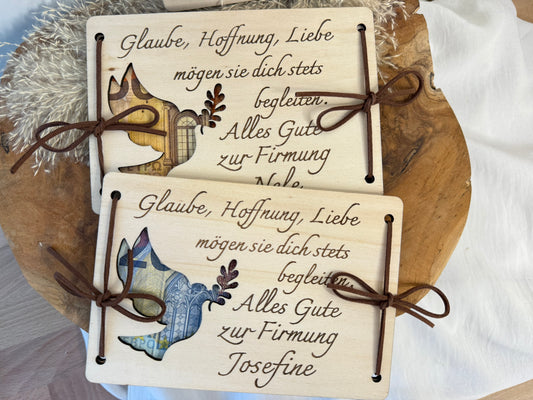 Glaube, Hoffnung, Liebe
mögen sie dich stets
begleiten.
Alles Gute
zur Firmung
Nele
Glaube, Hoffnung, Liebe
mögen sie dich stets
begleiten.
Alles Gute
zur Firmung
Josefine